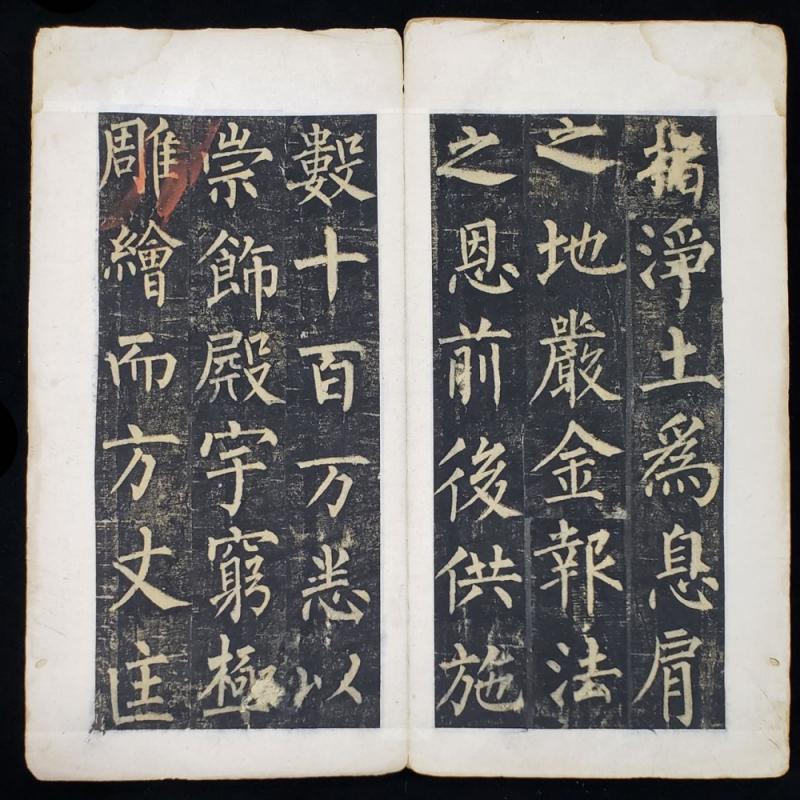 指淨土爲息肩
之地嚴金報法
之恩前後供施
數十百万悉以
崇飾殿宇窮極
雕繪而方丈匡